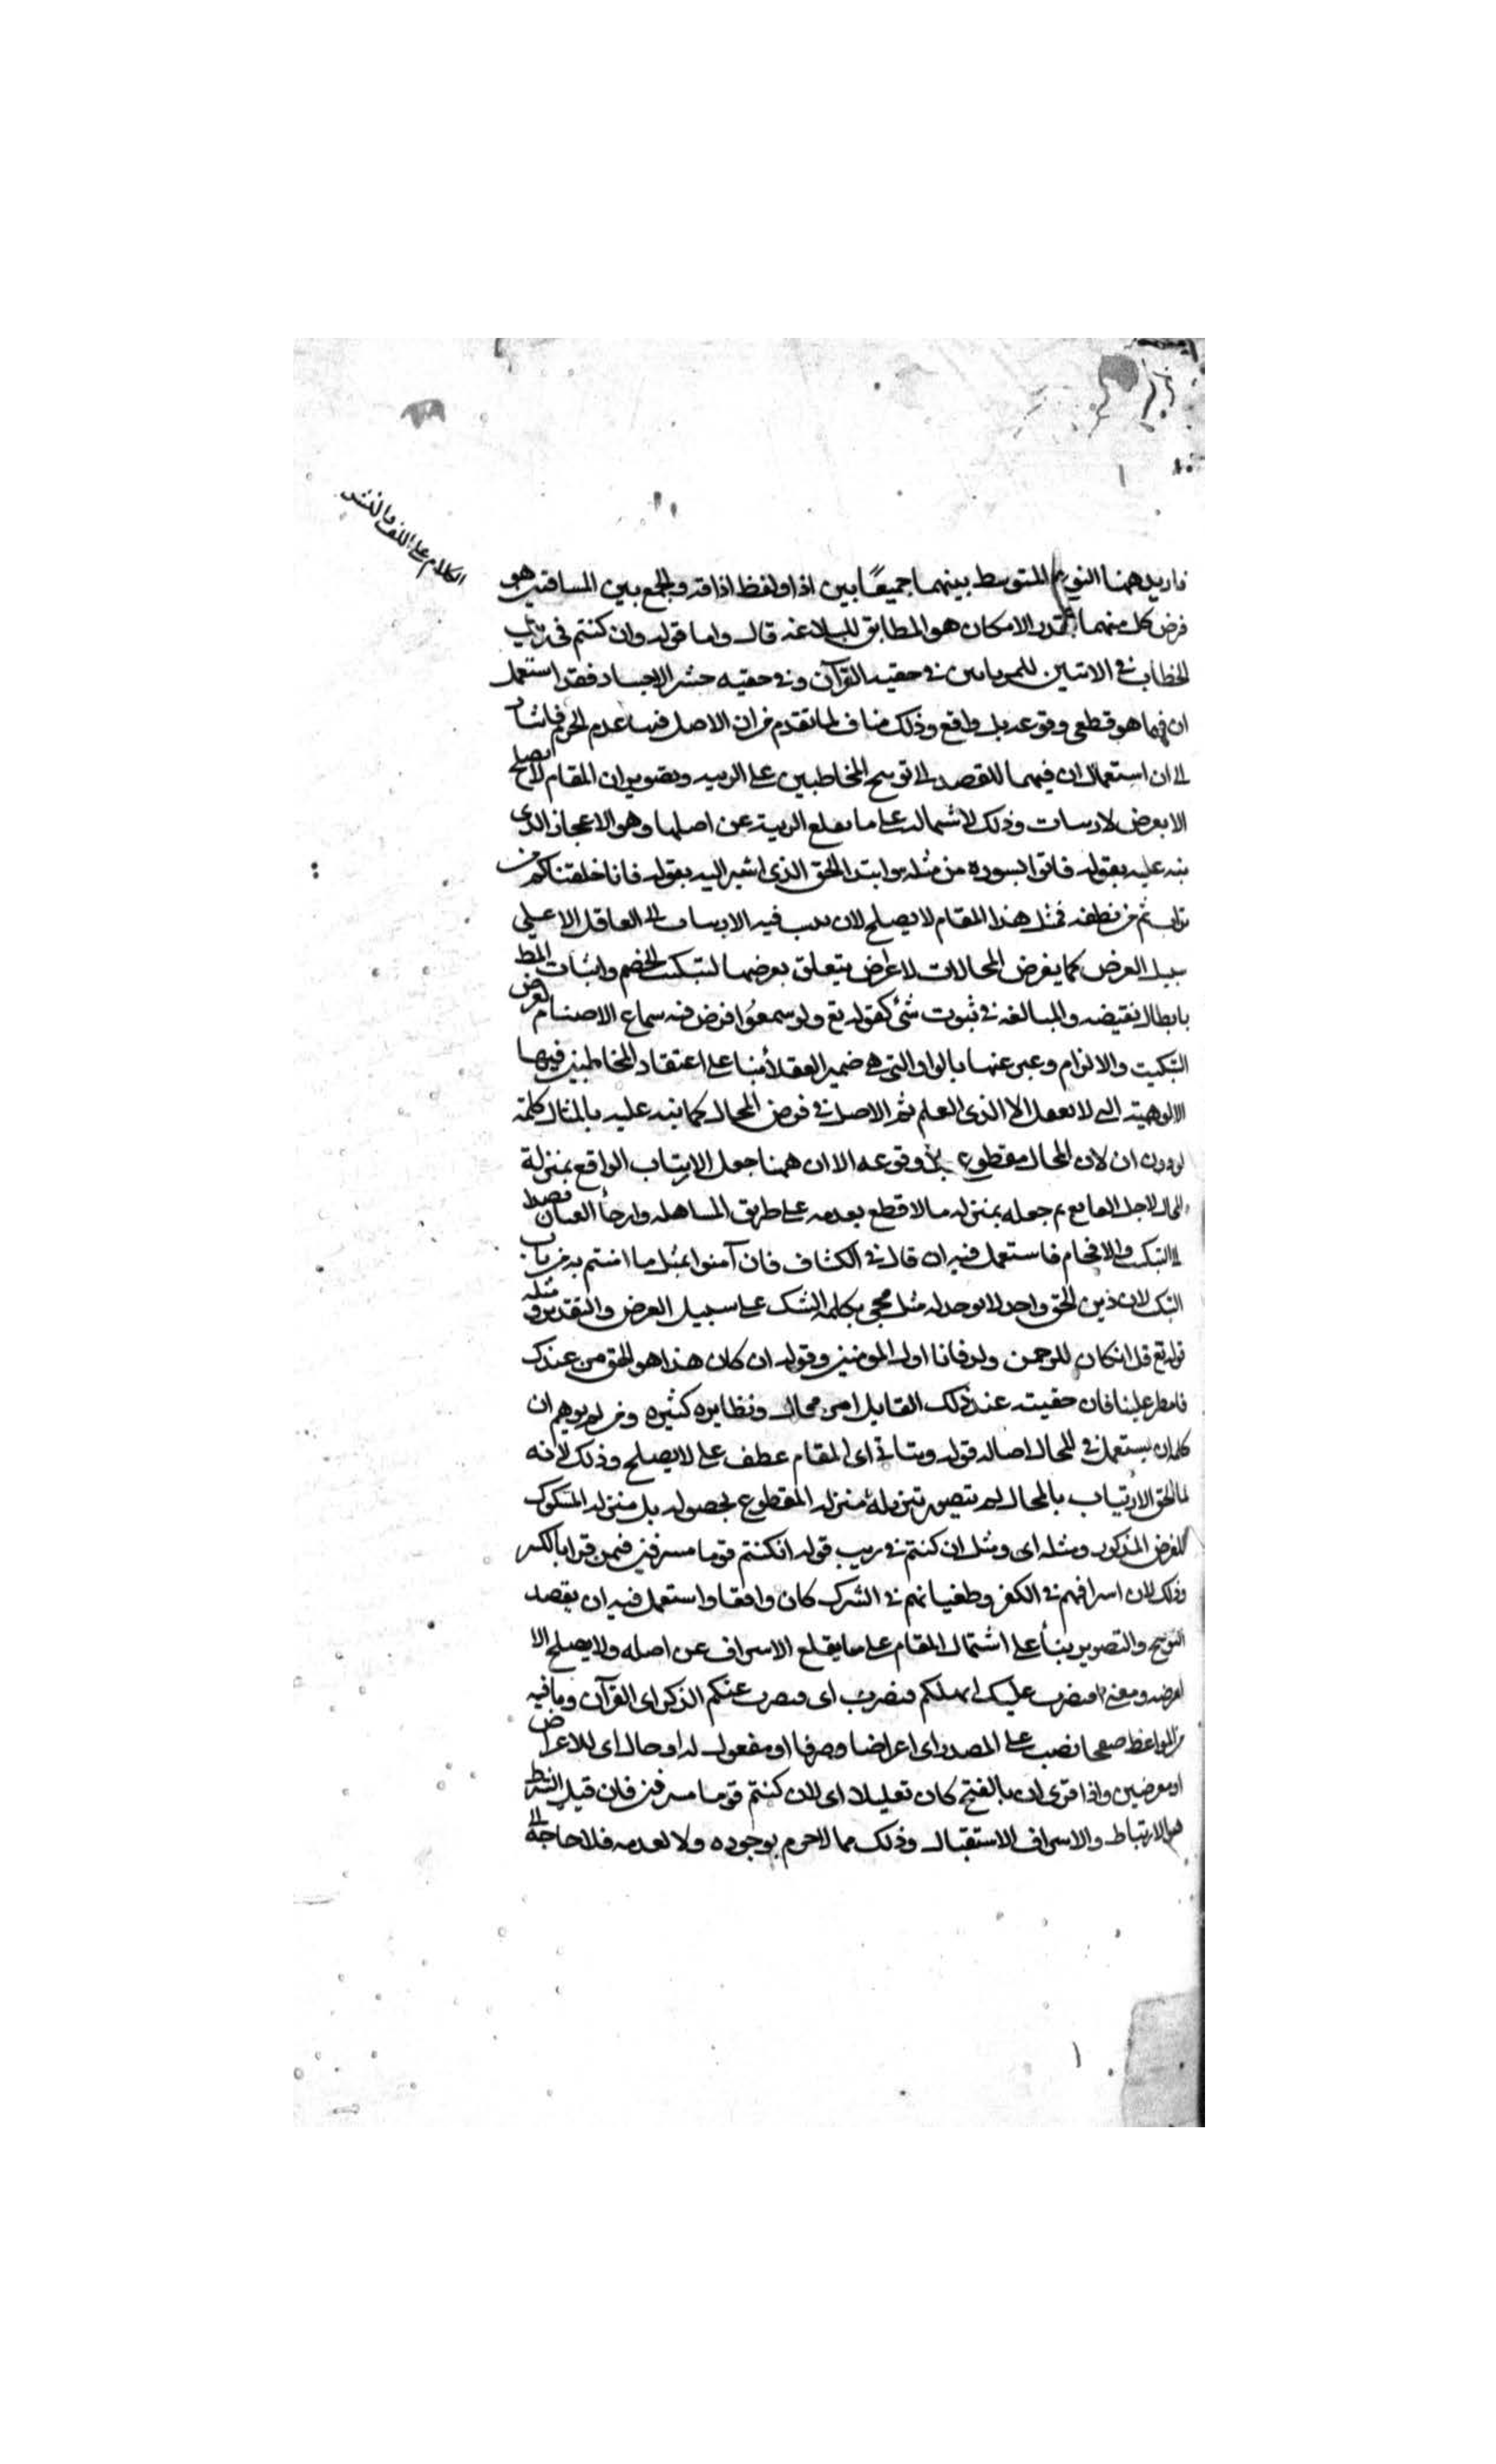 الكلام على اللف والنشر
فاريد ههنا النوع المتوسط بينهما جميعا بين اذا ولفظ اذاقة والجمع بين المساقين هو
فرض كل منهما بقدر الامكان هو المطابق للبلاغه قال واما قوله وان كنتم فى ريب
الخطاب فى الاتيين للمرتابين فى حقيه القرآن وفى حقيه حشر الاجساد فقد استعمل
ان فيما هو قطعى وقوعه بل واقع وذلك مناف لما تقدم من ان الاصل فيها عدم الجزم فاشار
الى ان استعمال ان فيهما للقصد الى توبيخ المخاطبين على الريبه وتصوير ان المقام لا يصلح
الا بفرض الارتياب وذلك لاشتماله على ما يقلع الريبة عن اصلها وهو الاعجاز الذى
نبه عليه بقوله فاتوا بسورة من مثله وابتدا الخلق الذى اشير اليه بقوله فانا خلقناكم من
تراب ثم من نطفه فمثل هذا المقام لا يصلح لان ينسب فيه الارتياب الى العاقل الا على
سبيل الفرض كما يفرض المحالات لاغراض يتعلق بفرضها لتبكيت الخصم واثبات المط
بابطال نقيضه والمبالغه فى ثبوت شئ كقوله تع ولو سمعوا فرض فيه سماع الاصنام لغرض
التبكيت والالزام وعبر عنها بالواو التى هى ضمير العقلا بنا على اعتقاد المخاطبين فيها
الالوهية التى لا تعقل الا لذى العلم ثم الاصل فى فرض المحال كما ينبه عليه بالمثال كلمة
لو دون ان لان المحال مقطوع بلا وقوعه الا ان ههنا جعل الارتياب الواقع بمنزلة
المحال لاجل القامع ثم جعله بمنزله ما لا قطع بعدمه على طريق المساهله وارخا العنان قصدا
الى التبكيت والافحام فاستعمل فيه ان قال فى الكشاف فان آمنوا بمثل ما امنتم به من باب
التبكيت لان دين الحق واحد لا يوجد له مثل فجى بكلمه الشك على سبيل الفرض والتقدير ومثله
قوله تع قل ان كان للرحمن ولد فانا اول المومنين وقوله ان كان هذا هو الحق من عندك
فامطر علينا فان حقيته عند ذلك القايل امر محال ونظايره كثيره ومن لم يوهم ان
كلمه ان يستعمل فى المحال اصاله قوله ويتاتى اى المقام عطف على لا يصلح وذلك لانه
لما الحق الارتياب بالمحال لم يتصور تنزيله منزله المقطوع بحصوله بل منزله المشكوك
للغرض المذكور ومثله اى ومثل ان كنتم فى ريب قوله ان كنتم قوما مسرفين فيمن قرا بالكسر
وذلك لان اسرافهم فى الكفر وطغيانهم فى الشرك كان واقعا واستعمل فيه ان بقصد
التوبيخ والتصوير بناء على اشتمال المقام على ما يقلع الاسراف عن اصله ولا يصلح الا
لفرضه ومعنى افنضرب عليك انهملكم فنضرب اى فنصرف عنكم الذكر اى القرآن وما فيه
من المواعظ صفحا نصب على المصدر اى اعراضا وصرفا او مفعول له او حال اى للاعراض
او معرضين واذا قرى ان بالفتح كان تعليلا اى لان كنتم قوما مسرفين فان قيل الشرط
هو الارتباط والاسراف الاستقبال وذلك مما لا جزم بوجوده ولا بعدمه فلا حاجة الى